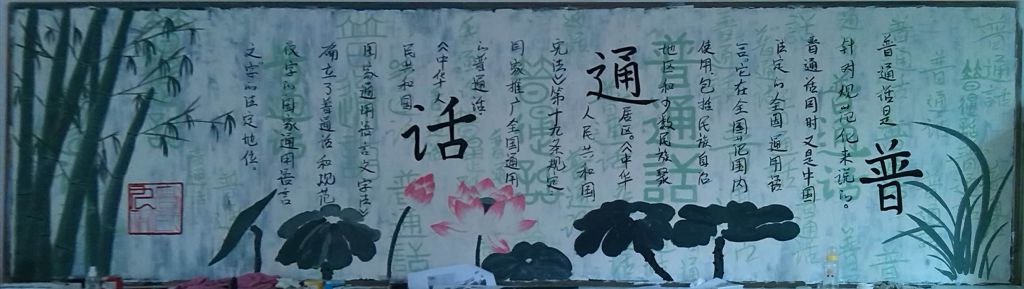 普通话
普通话是
针对规范化来说的。
普通话同时又是中国
法定的全国通用语
言。它在全国范围内
使用包括民族自治
地区和少数民族聚
居区。《中华
人民共和国
宪法》第十九条规定
国家推广全国通用
的普通话。
《中华人
民共和国
国家通用语言文字法》
确立了普通话和规范
汉字的国家通用语言
文字的法定地位。